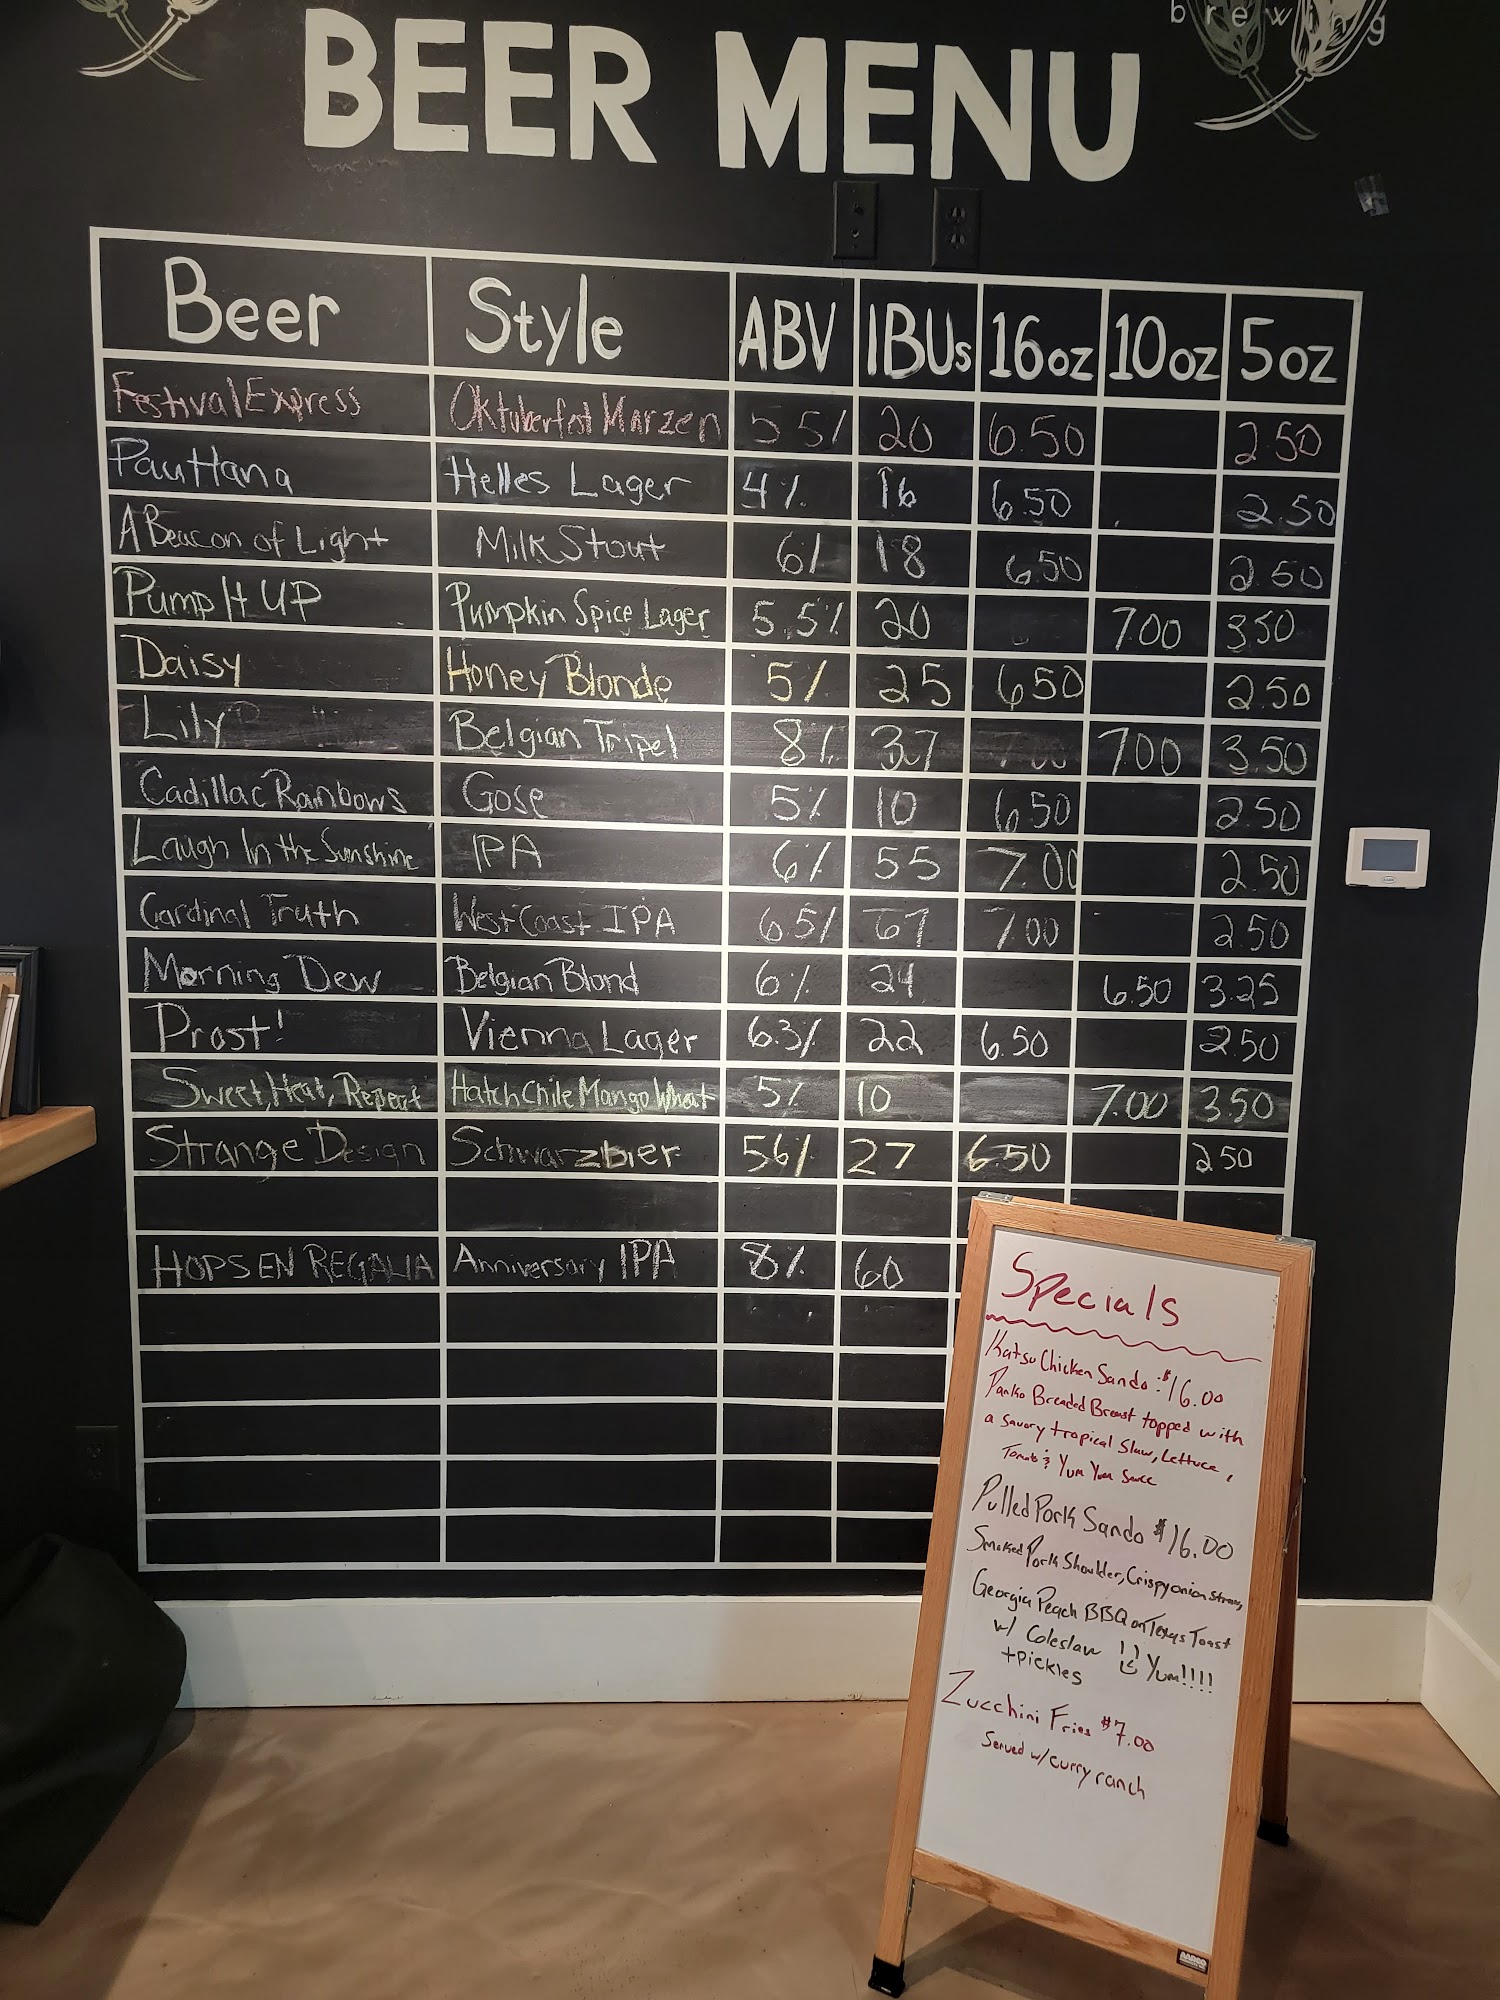 brewing
BEER MENU
Beer Style ABV IBUs 16oz 10oz 5oz
Festival Express Oktuberfest Marzen 5.5% 20 6.50 2.50
Pau Hana Helles Lager 4% 16 6.50 2.50
A Beacon of Light Milk Stout 6% 18 6.50 2.50
Pump It UP Pumpkin Spice Lager 5.5% 20 7.00 3.50
Daisy Honey Blonde 5% 25 6.50 2.50
Lily Belgian Tripel 8% 37 7.00 3.50
Cadillac Rainbows Gose 5% 10 6.50 2.50
Laugh In the Sunshine IPA 6% 55 7.00 2.50
Cardinal Truth West Coast IPA 6.5% 67 7.00 2.50
Morning Dew Belgian Blond 6% 24 6.50 3.25
Prost! Vienna Lager 6.3% 22 6.50 2.50
Sweet, Heat, Repeat Hatch Chile Mango Wheat 5% 10 7.00 3.50
Strange Design Schwarzbier 5.6% 27 6.50 2.50
HOPS EN REGALIA Anniversary IPA 8% 60
Specials
Katsu Chicken Sando: $16.00
Panko Breaded Breast topped with
a savory tropical Slaw, Lettuce,
Tomato & Yum Yum Sauce
Pulled Pork Sando $16.00
Smoked Pork Shoulder, Crispy onion straws,
Georgia Peach BBQ on Texas Toast
w/ Coleslaw Yum!!!!
+pickles
Zucchini Fries $7.00
Served w/ curry ranch